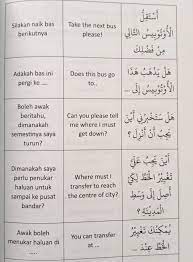 Silakan naik bas
berikutnya
Take the next bus
please!
أَسْتَقِلُّ
الأُوتُوبِيسَ التَّالِي
مِنْ فَضْلِكَ
Adakah bas ini
pergi ke ....
Does this bus go
to..
هَلْ يَذْهَبُ هَذَا
الأُوتُوبِيسُ إِلَى ...
Boleh awak
beritahu,
dimanakah
semestinya saya
turun?
Can you please tell
me where I must
get down?
هَلْ سَتُخْبِرُنِي أَيْنَ
يَجِبُ أَنْ أَنْزِلَ ؟
Dimanakah saya
perlu penukar
haluan untuk
sampai ke pusat
bandar?
Where must I
transfer to reach
the centre of city?
أَيْنَ يَجِبُ عَلَيَّ
تَغْيِيرُ الْخَطِّ لِكَيْ
أَصِلَ إِلَى وَسَطِ
الْمَدِينَةِ ؟
Awak boleh
menukar haluan di
....
You can transfer
at ...
يُمْكِنُكَ تَغْيِيرُ
الْخَطِّ عِنْدَ ...